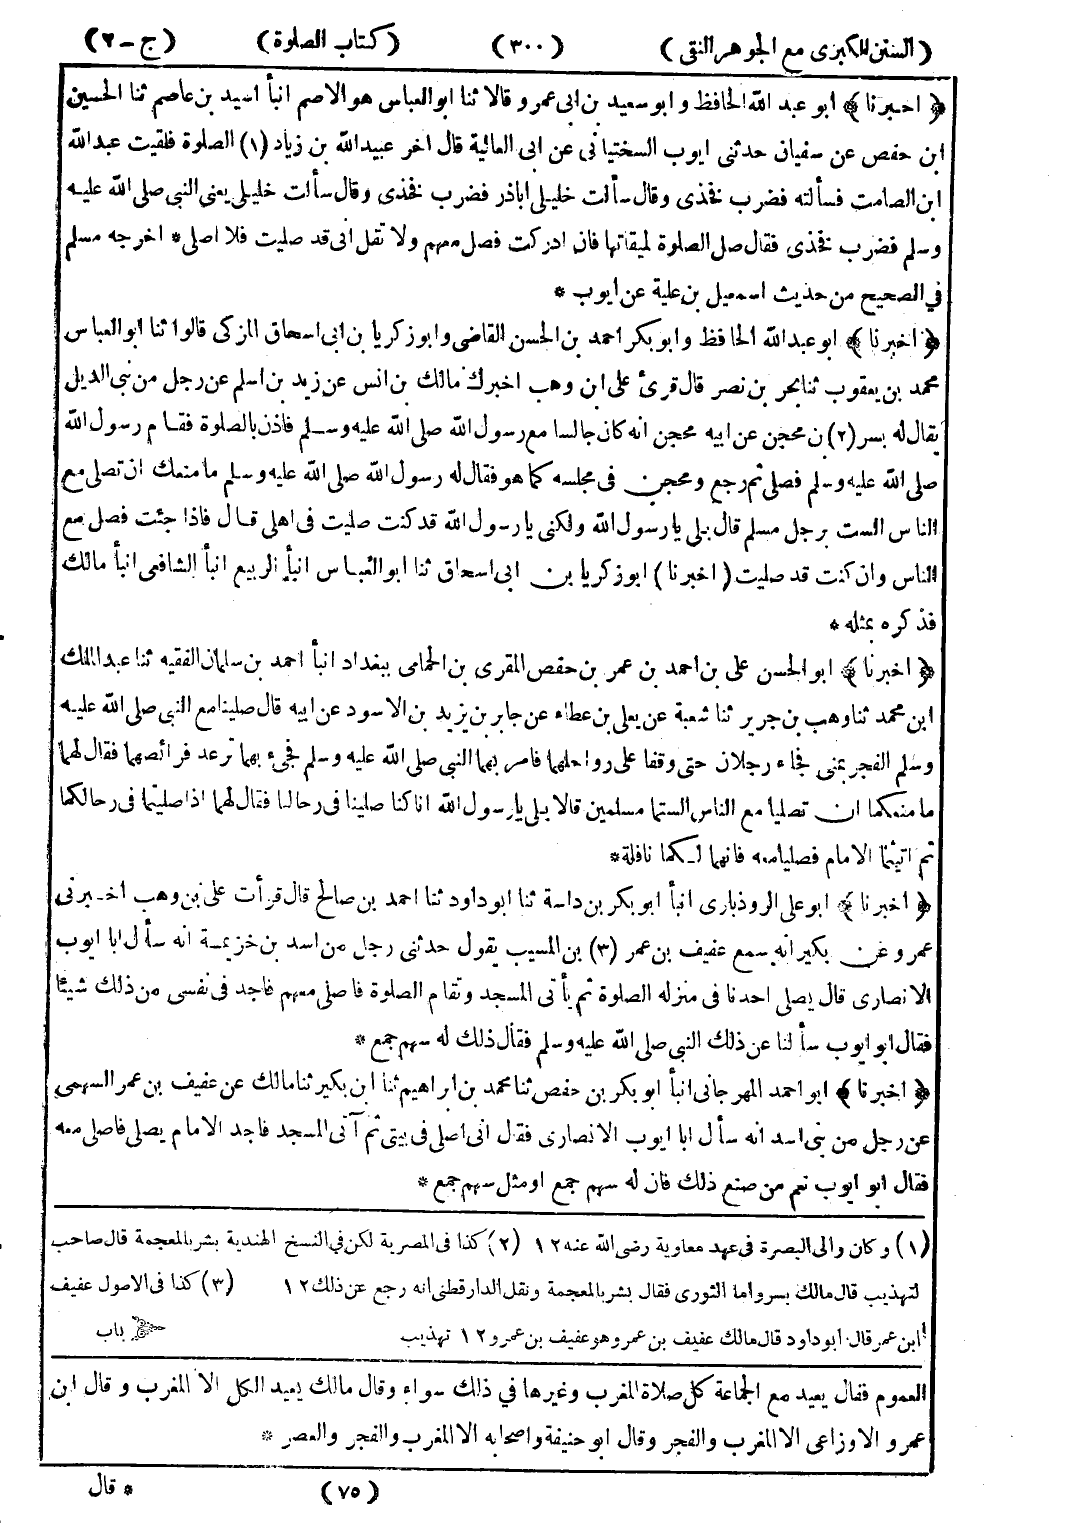 ( السنن الكبرى مع الجوهر النقى ) ( ٣٠٠ ) ( كتاب الصلوة ) ( ج - ٢ )
﴿ اخبرنا ﴾ ابو عبد الله الحافظ و ابو سعيد بن ابى عمرو قالا ثنا ابو العباس هو الاصم انبأ اسيد بن عاصم ثنا الحسين
ابن حفص عن سفيان حدثنى ايوب السختيانى عن ابى العالية قال اخر عبيد الله بن زياد (١) الصلوة فلقيت عبد الله
ابن الصامت فسألته فضرب فخذى وقال سألت خليلى اباذر فضرب فخذى وقال سألت خليلى يعنى النبى صلى الله عليه
وسلم فضرب فخذى فقال صل الصلوة لميقاتها فان ادركت فصل معهم ولا تقل انى قد صليت فلا اصلى * اخرجه مسلم
فى الصحيح من حديث اسمعيل بن علية عن ايوب *
﴿ اخبرنا ﴾ ابو عبد الله الحافظ و ابو بكر احمد بن الحسن القاضى و ابو زكريا بن ابى اسحاق المزكى قالوا ثنا ابو العباس
محمد بن يعقوب ثنا بحر بن نصر قال قرئ على ابن وهب اخبرك مالك بن انس عن زيد بن اسلم عن رجل من بنى الديل
يقال له بسر (٢) بن محجن عن ابيه محجن انه كان جالسا مع رسول الله صلى الله عليه وسلم فاذن بالصلوة فقام رسول الله
صلى الله عليه وسلم فصلى ثم رجع ومحجن فى مجلسه كما هو فقال له رسول الله صلى الله عليه وسلم ما منعك ان تصلى مع
الناس الست برجل مسلم قال بلى يا رسول الله ولكنى يا رسول الله قد كنت صليت فى اهلى قال فاذا جئت فصل مع
الناس وان كنت قد صليت ( اخبرنا ) ابو زكريا بن ابى اسحاق ثنا ابو العباس انبأ الربيع انبأ الشافعى انبأ مالك
فذكره بمثله *
﴿ اخبرنا ﴾ ابو الحسن على بن احمد بن عمر بن حفص المقرى بن الحمامى ببغداد انبأ احمد بن سلمان الفقيه ثنا عبد الملك
ابن محمد ثنا وهب بن جرير ثنا شعبة عن يعلى بن عطاء عن جابر بن يزيد بن الاسود عن ابيه قال صلينا مع النبى صلى الله عليه
وسلم الفجر بمنى فجاء رجلان حتى وقفا على رواحلهما فامر بهما النبى صلى الله عليه وسلم فجىء بهما ترعد فرائصهما فقال لهما
ما منعكما ان تصليا مع الناس الستما مسلمين قالا بلى يا رسول الله انا كنا صلينا فى رحالنا فقال لهما اذا صليتما فى رحالكما
ثم اتيتما الامام فصليا معه فانها لكما نافلة *
﴿ اخبرنا ﴾ ابو على الروذبارى انبأ ابو بكر بن داسة ثنا ابو داود ثنا احمد بن صالح قال قرأت على بن وهب اخبرنى
عمرو عن بكير انه سمع عفيف بن عمر (٣) بن المسيب يقول حدثنى رجل من اسد بن خزيمة انه سأل ابا ايوب
الانصارى قال يصلى احدنا فى منزله الصلوة ثم يأتى المسجد وتقام الصلوة فاصلى معهم فاجد فى نفسى من ذلك شيئا
فقال ابو ايوب سألنا عن ذلك النبى صلى الله عليه وسلم فقال ذلك له سهم جمع *
﴿ اخبرنا ﴾ ابو احمد المهرجانى انبأ ابو بكر بن حفص ثنا محمد بن ابراهيم ثنا ابن بكير ثنا مالك عن عفيف بن عمر السهمى
عن رجل من بنى اسد انه سأل ابا ايوب الانصارى فقال انى اصلى فى بيتى ثم آتى المسجد فاجد الامام يصلى فاصلى معه
فقال ابو ايوب نعم من صنع ذلك فان له سهم جمع او مثل سهم جمع *
(١) وكان والى البصرة فى عهد معاوية رضى الله عنه ١٢ (٢) كذا فى المصرية لكن فى النسخ الهندية بشر بالمعجمة قال صاحب
لتهذيب قال مالك بسر واما الثورى فقال بشر بالمعجمة ونقل الدارقطنى انه رجع عن ذلك ١٢ (٣) كذا فى الاصول عفيف
ابن عمر قال ابو داود قال مالك عفيف بن عمر وهو عفيف بن عمرو ١٢ تهذيب باب
العموم فقال يعيد مع الجماعة كل صلاة المغرب وغيرها في ذلك سواء وقال مالك يعيد الكل الا المغرب و قال ابن
عمرو الاوزاعى الا المغرب والفجر وقال ابو حنيفة واصحابه الا المغرب والفجر والعصر *
( ٧٥ ) * قال